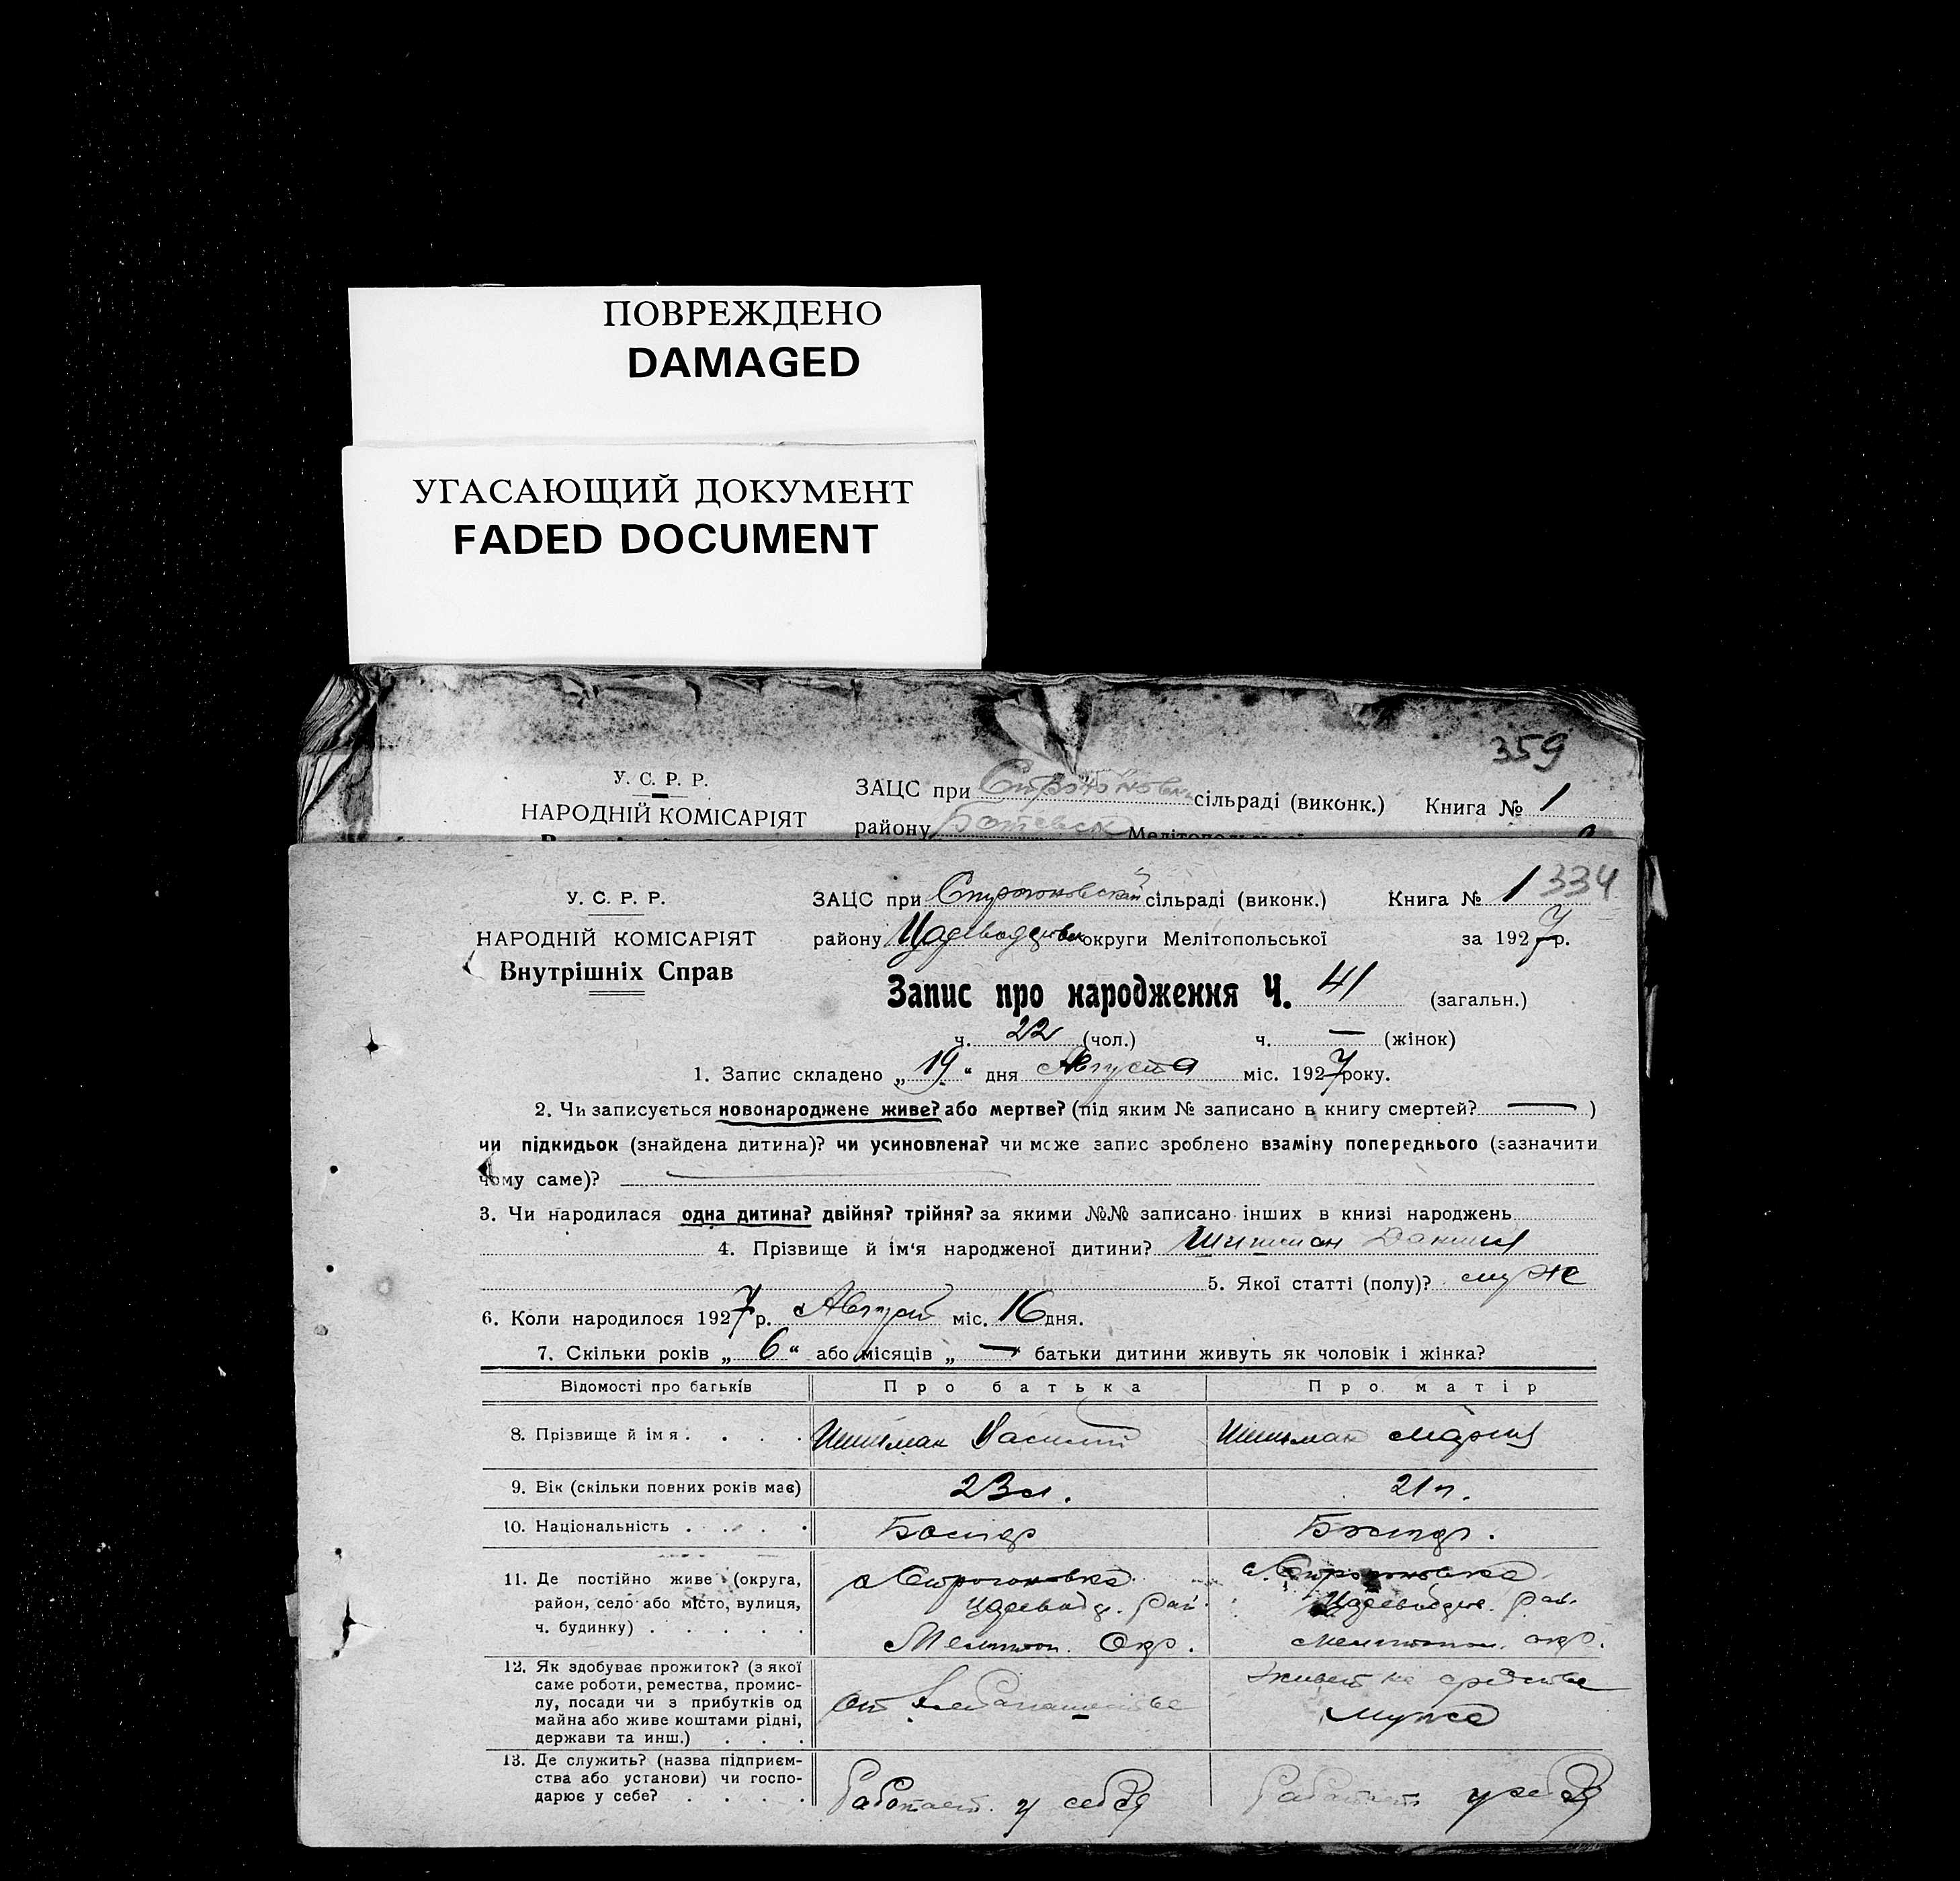 ПОВРЕЖДЕНО
DAMAGED
УГАСАЮЩИЙ ДОКУМЕНТ
FADED DOCUMENT
359
У. С. Р. Р.
НАРОДНІЙ КОМІСАРІЯТ
ЗАЦС при сільраді (виконк.) Книга № 1
району Ботевск Мелітопольської
У. С. Р. Р.
НАРОДНІЙ КОМІСАРІЯТ
Внутрішніх Справ
ЗАЦС при Строгоновский сільраді (виконк.) Книга № 1 334
району округи Мелітопольської за 1927 р.
Запис про народження Ч. 41 (загальн.)
ч. 22 (чол.) ч. — (жінок)
1. Запис складено „ 19 “ дня Августа міс. 1927 року.
2. Чи записується новонароджене живе? або мертве? (під яким № записано в книгу смертей? — )
чи підкидьок (знайдена дитина)? чи усиновлена? чи може запис зроблено взаміну попереднього (зазначити
чому саме)?
3. Чи народилася одна дитина? двійня? трійня? за якими №№ записано інших в книзі народжень
4. Прізвище й ім'я народженої дитини? Шишман Даниил
5. Якої статті (полу)? муж
6. Коли народилося 1927 р. Август міс. 16 дня.
7. Скільки років „ 6 “ або місяців „ — “ батьки дитини живуть як чоловік і жінка?
Відомості про батьків Про батька Про матір
8. Прізвище й імя . . . . Шишман Василий Шишман Мария
9. Вік (скільки повних років має) 23 л. 21 л.
10. Національність . . . . . Болгар Болгар.
11. Де постійно живе (округа,
район, село або місто, вулиця,
ч. будинку) . . . . .
с. Строгоновка
рай.
Мелитоп. Окр.
с. Строгоновка
рай.
Мелитопол. окр.
12. Як здобуває прожиток? (з якої
саме роботи, ремества, промис-
лу, посади чи з прибутків од
майна або живе коштами рідні,
держави та инш.) . . .
от Хлебопашества
Живет на средства
мужа
13. Де служить? (назва підприєм-
ства або установи) чи госпо-
дарює у себе? . . . .
Работает у себя
Работает у себя